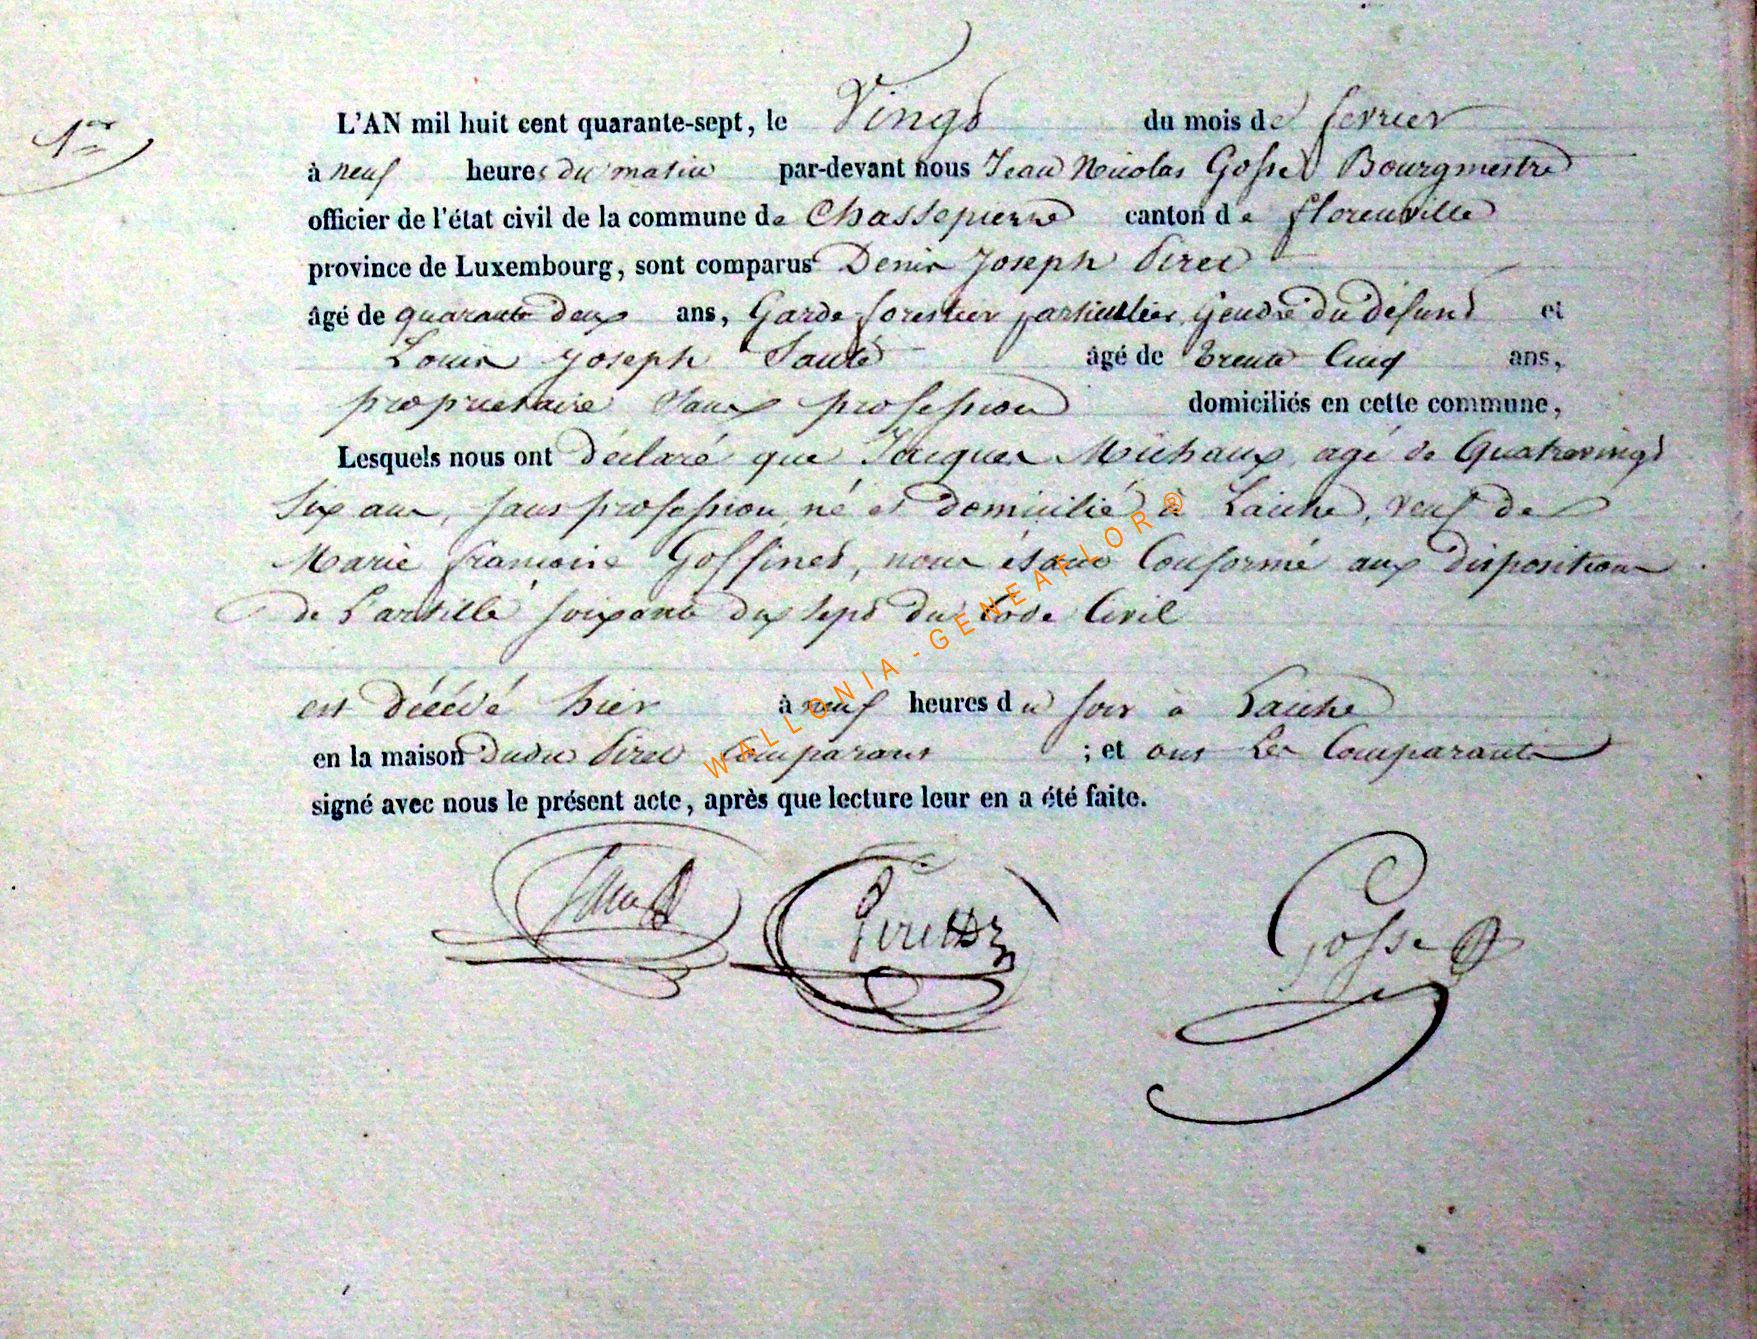 1er
L'AN mil huit cent quarante-sept, le Vingt du mois de fevrier
à neuf heures du matin par-devant nous Jean Nicolas Gosset Bourgmestre
officier de l'état civil de la commune de Chassepierre canton de florenville
province de Luxembourg, sont comparus Denis Joseph Piret
âgé de quarante deux ans, Garde forestier particulier, Gendre du défunt et
Louis Joseph Sauté âgé de trente Cinq ans,
propriétaire Sans profession domiciliés en cette commune,
Lesquels nous ont déclaré que Jacques Michaux, agé de Quatrevingt
Six ans, sans profession, né et domicilié à Laiche, veuf de
Marie françoise Goffinet, nous étant Conformé aux dispositions
de l'article soixante dix sept du Code Civil
est décédé hier à neuf heures du soir à Laiche
en la maison dudit Piret Comparant ; et ont Les Comparants
signé avec nous le présent acte, après que lecture leur en a été faite.
Gosset
WALLONIA-GENEAFLOR®